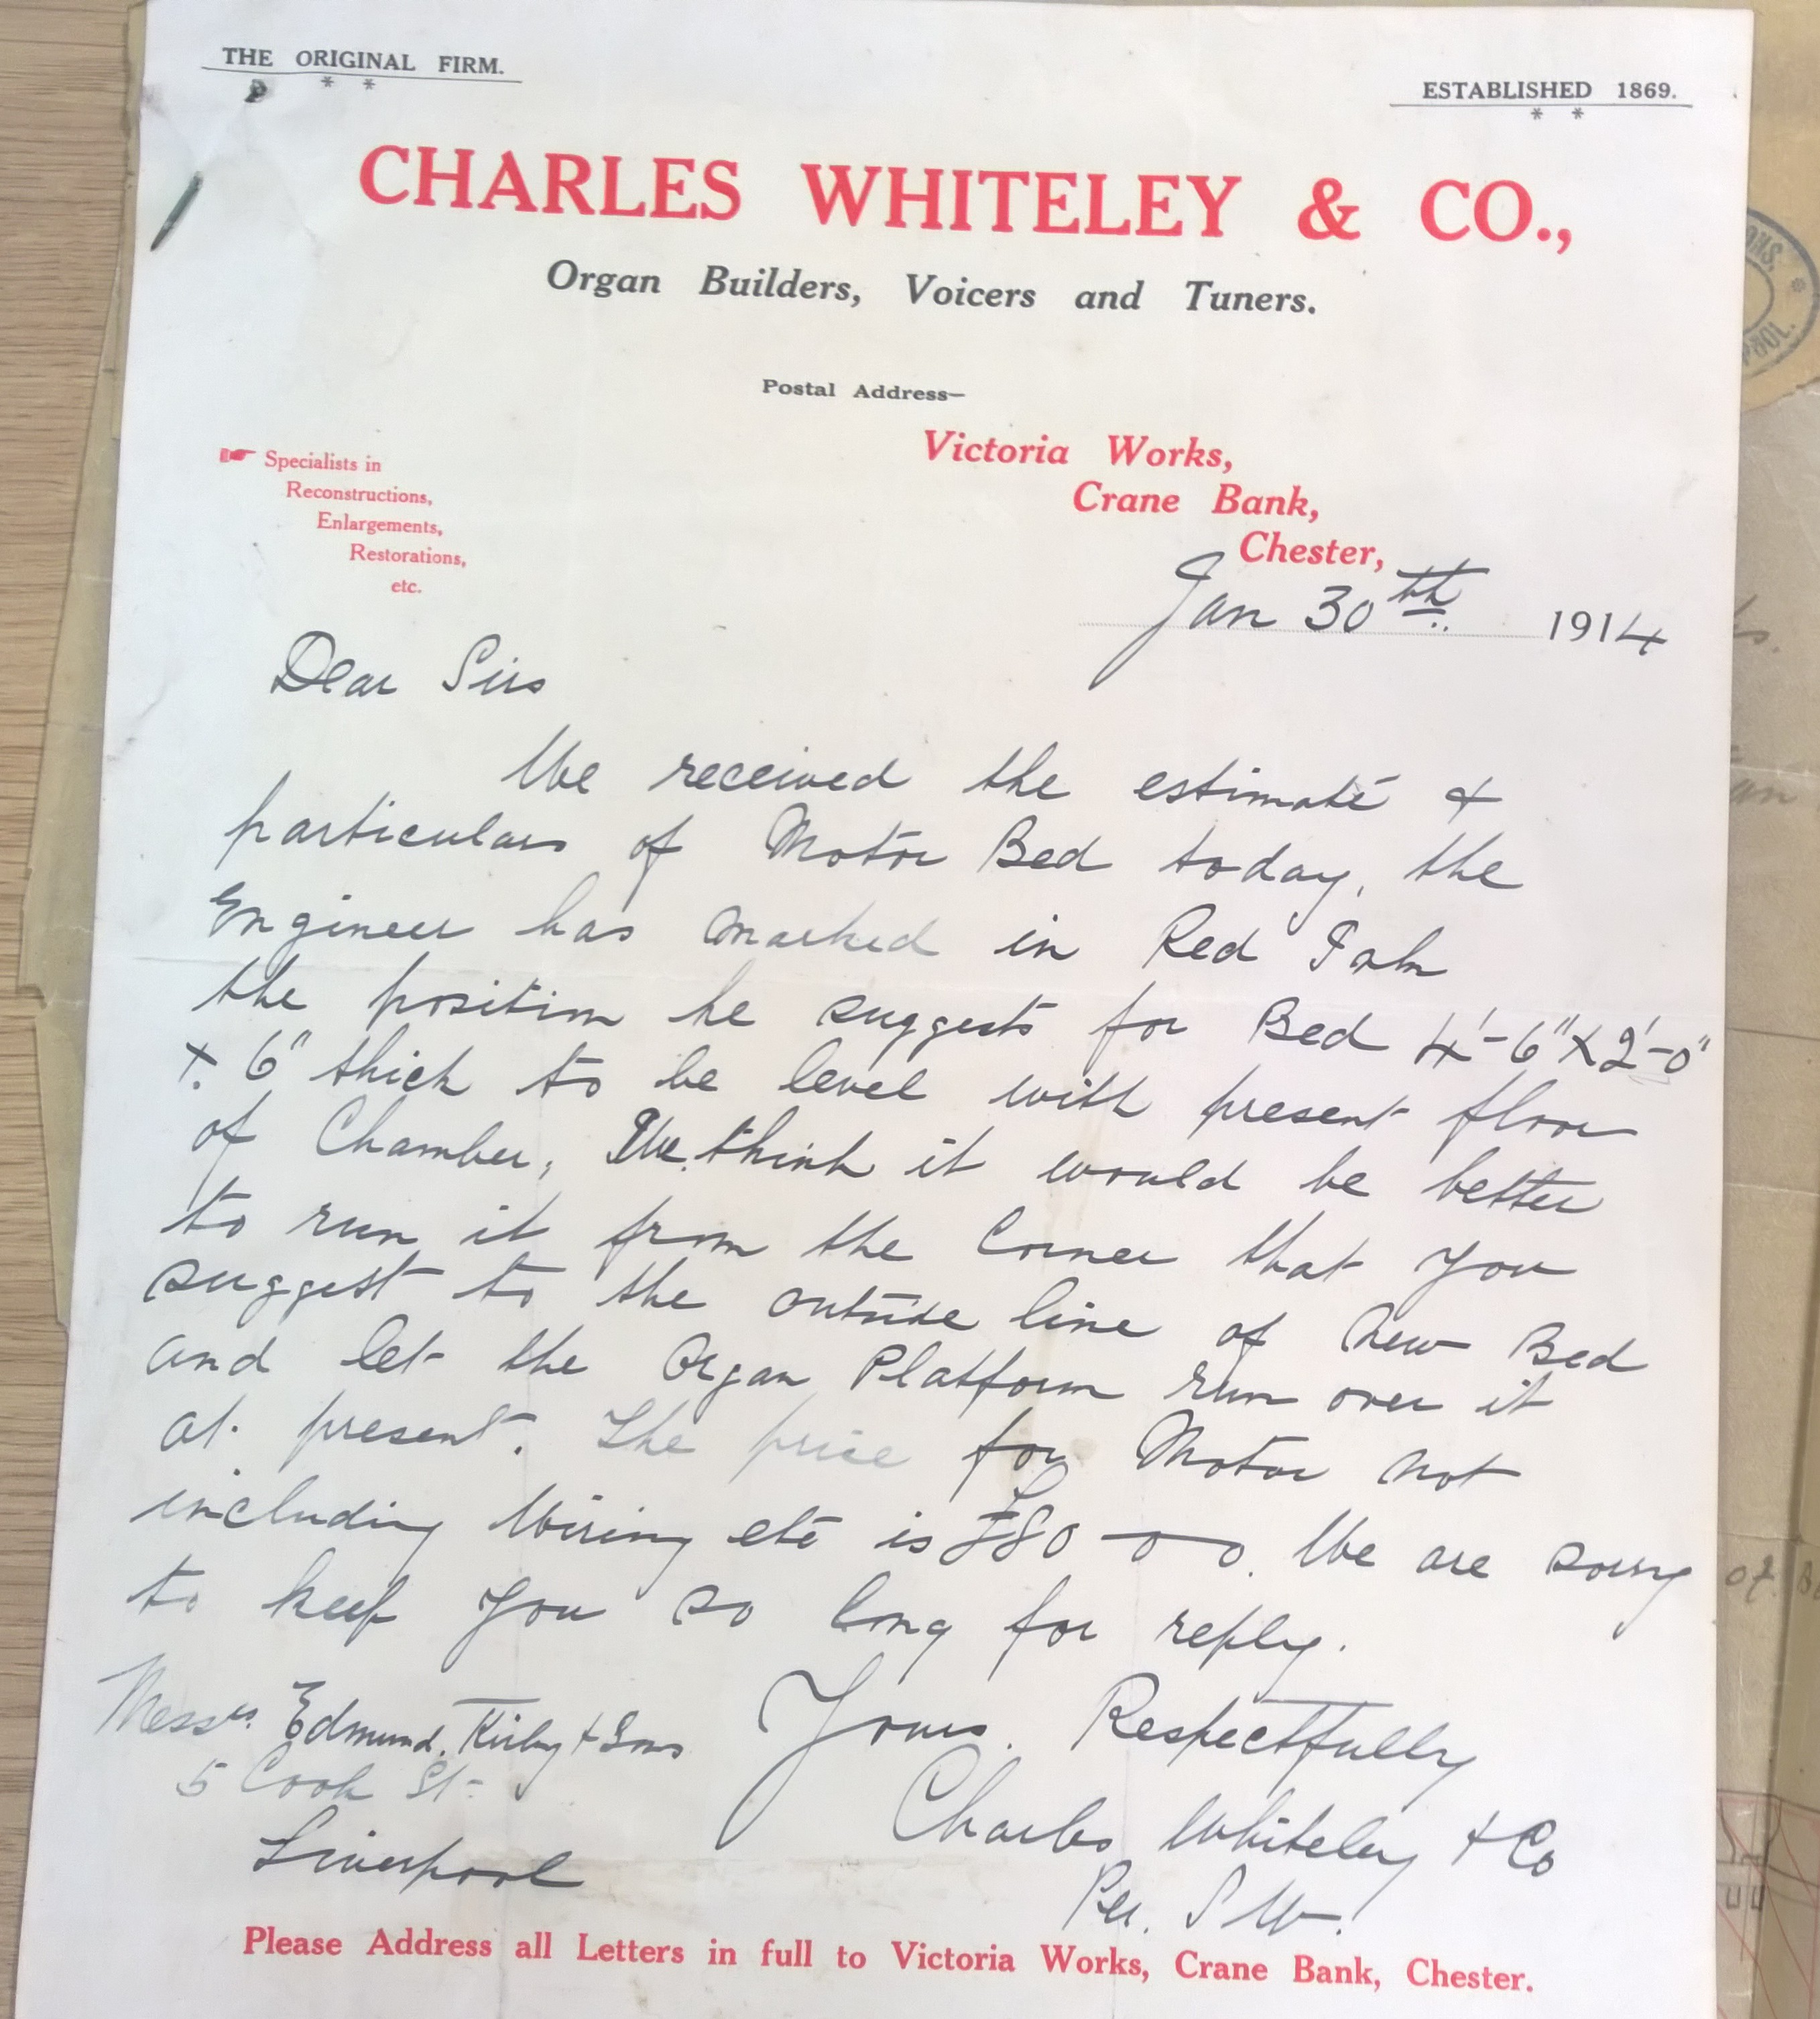 THE ORIGINAL FIRM.
* *
ESTABLISHED 1869.
* *
CHARLES WHITELEY & CO.,
Organ Builders, Voicers and Tuners.
Postal Address—
Victoria Works,
Crane Bank,
Chester,
☛ Specialists in
Reconstructions,
Enlargements,
Restorations,
etc.
Jan 30th 1914
Dear Sirs
We received the estimate &
particulars of Motor Bed today, the
Engineer has marked in Red
the position he suggests for Bed 4'-6" x 2'-0"
x 6" thick to be level with present floor
of Chamber, We think it would be better
to run it from the Corner that you
suggest to the outside line of New Bed
and let the Organ Platform run over it
at present. The price for Motor not
including Wiring etc is £80-0-0. We are sorry
to keep you so long for reply.
Messrs. Edmund. Kirby & Sons
5 Cook St-
Liverpool
Yours. Respectfully
Charles Whiteley & Co
Per. S W.
Please Address all Letters in full to Victoria Works, Crane Bank, Chester.